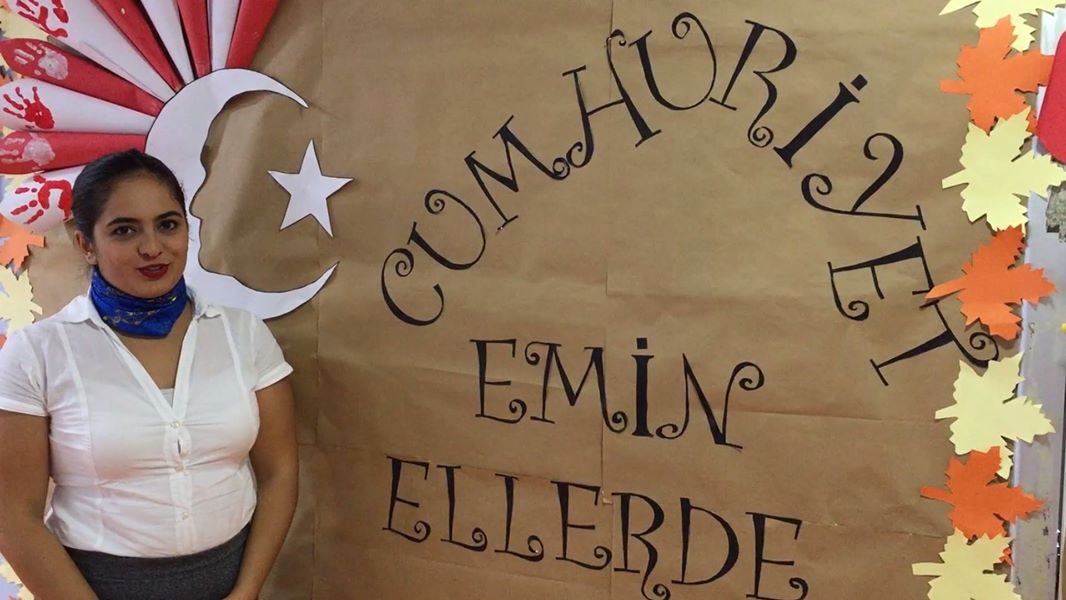 CUMHURİYET
EMİN
ELLERDE